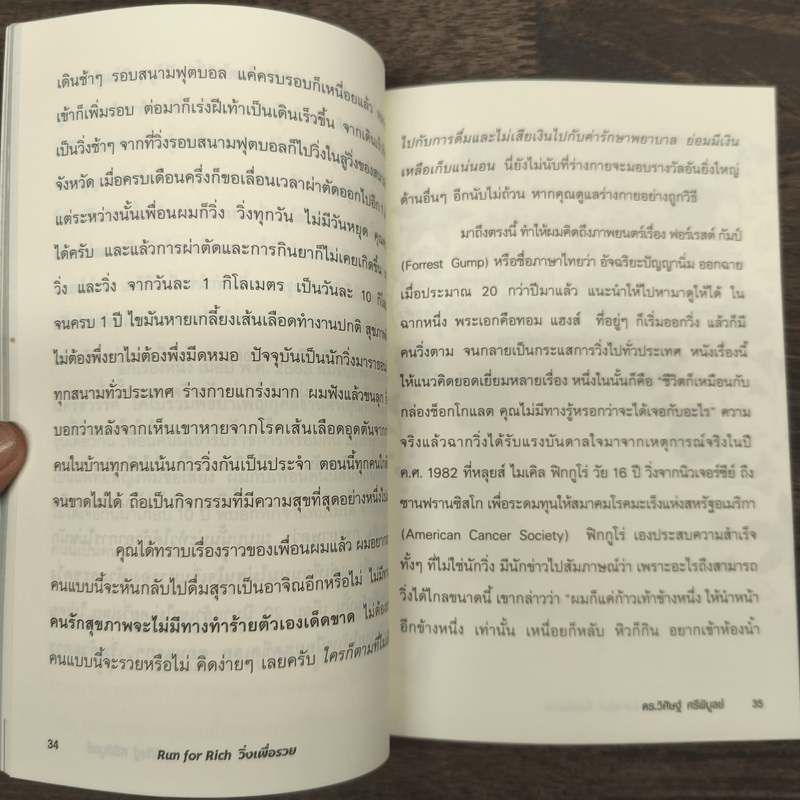 เดินช้าๆ รอบสนามฟุตบอล แค่ครบรอบก็เหนื่อยแล้ว
เข้าก็เพิ่มรอบ ต่อมาก็เร่งฝีเท้าเป็นเดินเร็วขึ้น จากเดินเร็ว
เป็นวิ่งช้าๆ จากที่วิ่งรอบสนามฟุตบอลก็ไปวิ่งในลู่วิ่งของสนาม
จังหวัด เมื่อครบเดือนครึ่งก็ขอเลื่อนเวลาผ่าตัดออกไปอีก
แต่ระหว่างนั้นเพื่อนผมก็วิ่ง วิ่งทุกวัน ไม่มีวันหยุด
ได้ครับ และแล้วการผ่าตัดและการกินยาก็ไม่เคยเกิดขึ้น
วิ่ง และวิ่ง จากวันละ 1 กิโลเมตร เป็นวันละ 10
จนครบ 1 ปี ไขมันหายเกลี้ยงเส้นเลือดทำงานปกติ
ไม่ต้องพึ่งยาไม่ต้องพึ่งมีดหมอ ปัจจุบันเป็นนักวิ่งมาราธอน
ทุกสนามทั่วประเทศ ร่างกายแกร่งมาก ผมฟังแล้วขนลุก
บอกว่าหลังจากเห็นเขาหายจากโรคเส้นเลือดอุดตัน
คนในบ้านทุกคนเน้นการวิ่งกันเป็นประจำ ตอนนี้ทุกคน
จนขาดไม่ได้ ถือเป็นกิจกรรมที่มีความสุขที่สุดอย่างหนึ่ง
คุณได้ทราบเรื่องราวของเพื่อนผมแล้ว
คนแบบนี้จะหันกลับไปดื่มสุราเป็นอาจิณอีกหรือไม่
คนรักสุขภาพจะไม่มีทางทำร้ายตัวเองเด็ดขาด
คนแบบนี้จะรวยหรือไม่ คิดง่ายๆ เลยครับ ใครก็ตามที่
34
Run for Rich วิ่งเพื่อรวย
ไปกับการดื่มและไม่เสียเงินไปกับค่ารักษาพยาบาล ย่อมมีเงิน
เหลือเก็บแน่นอน นี่ยังไม่นับที่ร่างกายจะมอบรางวัลอันยิ่งใหญ่
ด้านอื่นๆ อีกนับไม่ถ้วน หากคุณดูแลร่างกายอย่างถูกวิธี
มาถึงตรงนี้ ทำให้ผมคิดถึงภาพยนตร์เรื่อง ฟอร์เรสต์ กัมป์
(Forrest Gump) หรือชื่อภาษาไทยว่า อัจฉริยะปัญญานิ่ม ออกฉาย
เมื่อประมาณ 20 กว่าปีมาแล้ว แนะนำให้ไปหามาดูให้ได้ ใน
ฉากหนึ่ง พระเอกคือทอม แฮงส์ ที่อยู่ๆ ก็เริ่มออกวิ่ง แล้วก็มี
คนวิ่งตาม จนกลายเป็นกระแสการวิ่งไปทั่วประเทศ หนังเรื่องนี้
ให้แนวคิดยอดเยี่ยมหลายเรื่อง หนึ่งในนั้นก็คือ "ชีวิตก็เหมือนกับ
กล่องช็อกโกแลต คุณไม่มีทางรู้หรอกว่าจะได้เจอกับอะไร" ความ
จริงแล้วฉากวิ่งได้รับแรงบันดาลใจมาจากเหตุการณ์จริงในปี
ค.ศ. 1982 ที่หลุยส์ ไมเคิล ฟิกกูโร่ วัย 16 ปี วิ่งจากนิวเจอร์ซีย์ ถึง
ซานฟรานซิสโก เพื่อระดมทุนให้สมาคมโรคมะเร็งแห่งสหรัฐอเมริกา
(American Cancer Society) ฟิกกูโร่ เองประสบความสำเร็จ
ทั้งๆ ที่ไม่ใช่นักวิ่ง มีนักข่าวไปสัมภาษณ์ว่า เพราะอะไรถึงสามารถ
วิ่งได้ไกลขนาดนี้ เขากล่าวว่า "ผมก็แค่ก้าวเท้าข้างหนึ่ง ให้นำหน้า
อีกข้างหนึ่ง เท่านั้น เหนื่อยก็หลับ หิวก็กิน อยากเข้าห้องน้ำ
ดร.วิศิษฐ์ ศรีพิบูลย์ 35